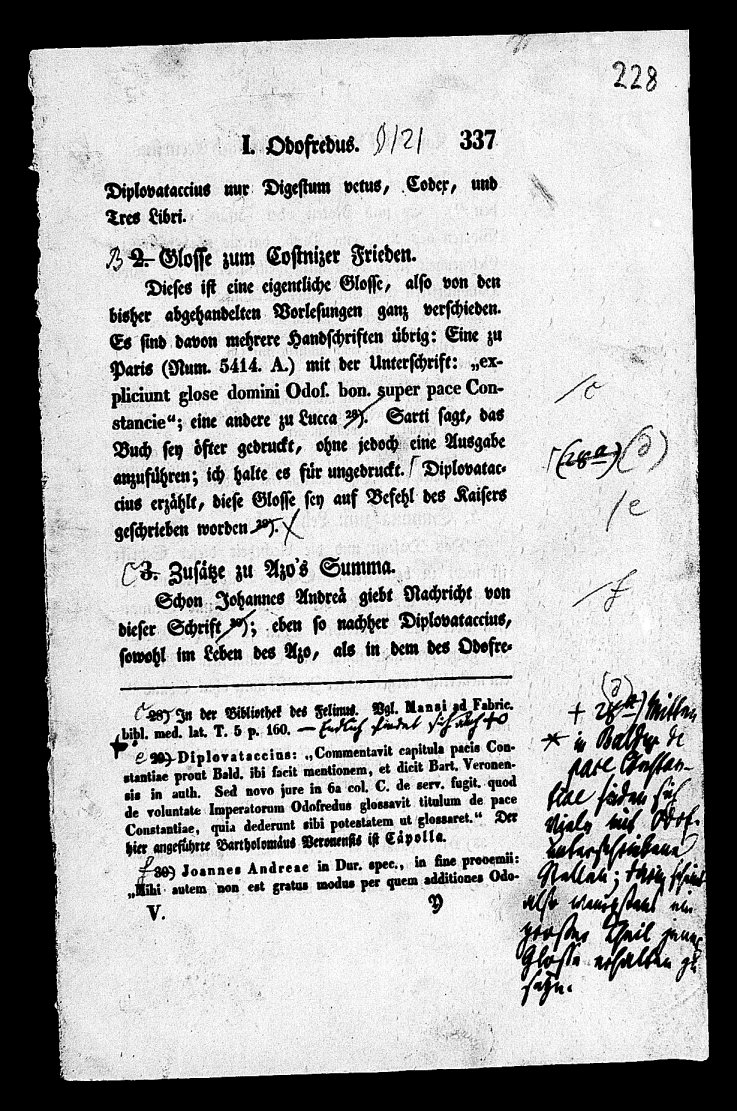 228
I. Odofredus. 337
Diplovataccius nur Digestum vetus, Codex, und
Tres Libri.
B 2. Glosse zum Costnizer Frieden.
Dieses ist eine eigentliche Glosse, also von den
bisher abgehandelten Vorlesungen ganz verschieden.
Es sind davon mehrere Handschriften übrig: Eine zu
Paris (Num. 5414. A.) mit der Unterschrift: „ex-
pliciunt glose domini Odof. bon. super pace Con-
stancie“; eine andere zu Lucca 28). Sarti sagt, das
Buch sey öfter gedruckt, ohne jedoch eine Ausgabe
anzuführen; ich halte es für ungedruckt. Diplovatac-
cius erzählt, diese Glosse sey auf Befehl des Kaisers
geschrieben worden 29).
C 3. Zusätze zu Azo's Summa.
Schon Johannes Andreä giebt Nachricht von
dieser Schrift 30); eben so nachher Diplovataccius,
sowohl im Leben des Azo, als in dem des Odofre-
/c
(28a) (d)
/e
/f
c 28) In der Bibliothek des Felinus. Vgl. Mansi ad Fabric.
bibl. med. lat. T. 5 p. 160. —
e 29) Diplovataccius: „Commentavit capitula pacis Con-
stantiae prout Bald. ibi facit mentionem, et dicit Bart. Veronen-
sis in auth. Sed novo jure in 6a col. C. de serv. fugit. quod
de voluntate Imperatorum Odofredus glossavit titulum de pace
Constantiae, quia dederunt sibi potestatem ut glossaret.“ Der
hier angeführte Bartholomäus Veronensis ist Cäpolla.
f 30) Joannes Andreae in Dur. spec., in fine prooemii:
„Mihi autem non est gratus modus per quem additiones Odo-
V. Y
(d)
+ 28a) Mitten
* in Baldus de
pace Constan-
tiae finden sich
viele mit Odof.
unterschriebene
Stellen; darin scheint
also wenigstens ein
großer Theil jener
Glosse erhalten zu
seyn.